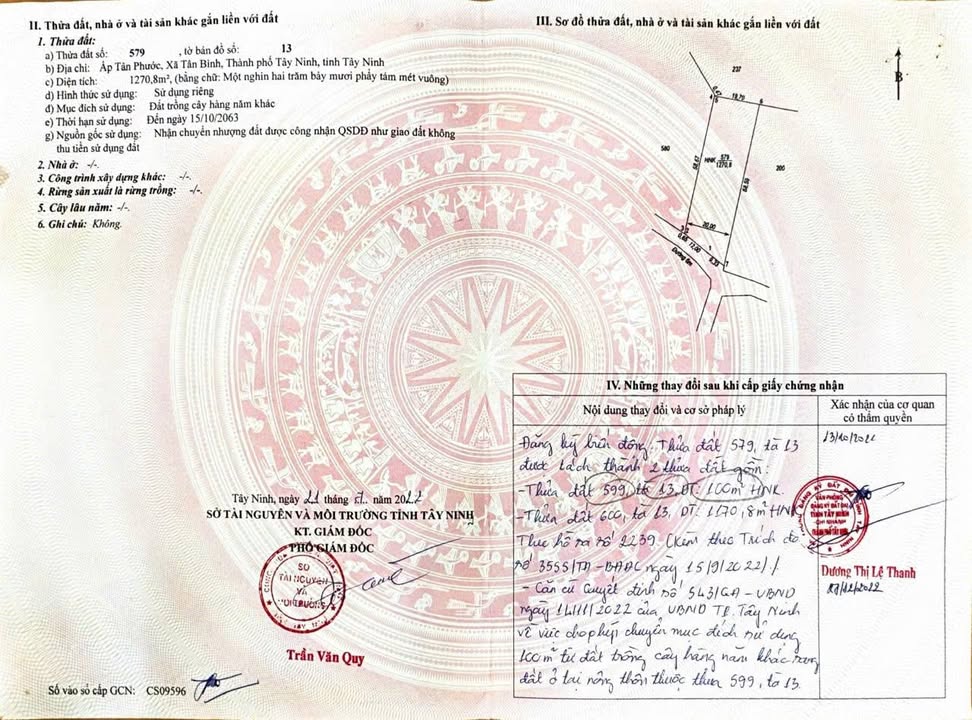 II. Thửa đất, nhà ở và tài sản khác gắn liền với đất
1. Thửa đất:
a) Thửa đất số: 579 , tờ bản đồ số: 13
b) Địa chỉ: Ấp Tân Phước, Xã Tân Bình, Thành phố Tây Ninh, tỉnh Tây Ninh
c) Diện tích: 1270,8m², (bằng chữ: Một nghìn hai trăm bảy mươi phẩy tám mét vuông)
d) Hình thức sử dụng: Sử dụng riêng
đ) Mục đích sử dụng: Đất trồng cây hàng năm khác
e) Thời hạn sử dụng: Đến ngày 15/10/2063
g) Nguồn gốc sử dụng: Nhận chuyển nhượng đất được công nhận QSDĐ như giao đất không
thu tiền sử dụng đất
2. Nhà ở: -/-.
3. Công trình xây dựng khác: -/-.
4. Rừng sản xuất là rừng trồng: -/-.
5. Cây lâu năm: -/-.
6. Ghi chú: Không.
Tây Ninh, ngày 21 tháng 7. năm 2022
SỞ TÀI NGUYÊN VÀ MÔI TRƯỜNG TỈNH TÂY NINH
KT. GIÁM ĐỐC
PHÓ GIÁM ĐỐC
SỞ
TÀI NGUYÊN
VÀ
MÔI TRƯỜNG
Trần Văn Quy
Số vào sổ cấp GCN: CS09596
III. Sơ đồ thửa đất, nhà ở và tài sản khác gắn liền với đất
B
237
0.47
4
5
19.70
6
580
HNK 579
1270,8
200
20,00
3
2
12,00
1
7
Đường 6m
IV. Những thay đổi sau khi cấp giấy chứng nhận
Nội dung thay đổi và cơ sở pháp lý
Xác nhận của cơ quan
có thẩm quyền
Đăng ký biến động: Thửa đất 579, tờ 13
được tách thành 2 thửa đất gồm:
- Thửa đất 599, tờ 13, DT: 100m² HNK.
- Thửa đất 600, tờ 13, DT: 1170,8m² HNK
Theo hồ sơ số 2239. (Kèm theo Trích đo
số 3555/TĐ-BĐĐC ngày 15/9/2022)./.
- Căn cứ Quyết định số 543/QĐ-UBND
ngày 14/11/2022 của UBND TP. Tây Ninh
về việc cho phép chuyển mục đích sử dụng
100m² từ đất trồng cây hàng năm khác sang
đất ở tại nông thôn thuộc thửa 599, tờ 13.
13/10/2022
VĂN PHÒNG
ĐĂNG KÝ ĐẤT ĐAI
TỈNH TÂY NINH
CHI NHÁNH
THÀNH PHỐ TÂY NINH
Dương Thị Lệ Thanh